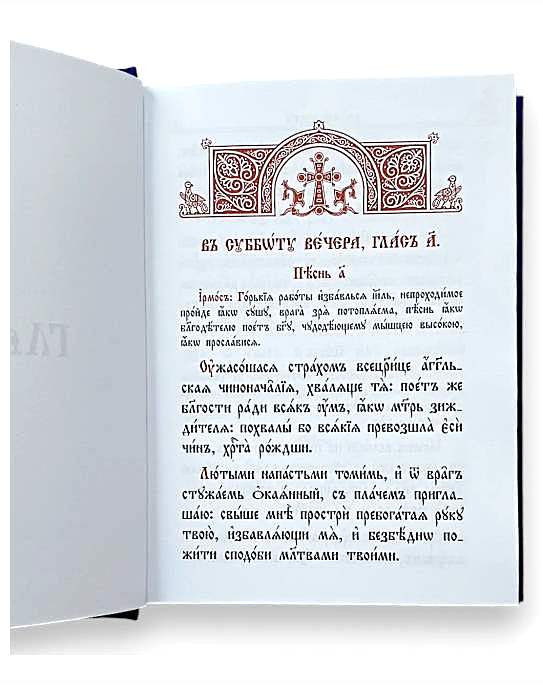 въ сꙋббѡ́тꙋ ве́чера, гла́съ а҃.
Пѣ́снь а҃
І҆рмо́съ: Го́рькїѧ рабо́ты и҆зба́вльсѧ і҆и҃ль, непроходи́мое
про́йде ꙗ҆́кѡ сꙋ́шꙋ, врага̀ зрѧ̀ потоплѧ́ема, пѣ́снь ꙗ҆́кѡ
бл҃годѣ́телю пое́тъ бг҃ꙋ, чꙋдодѣ́ющемꙋ мы́шцею высо́кою,
ꙗ҆́кѡ просла́висѧ.
Оу҆жасо́шасѧ стра́хомъ всецр҃и́це а҆́гг҃ль-
скаѧ чинонача̑лїѧ, хва́лѧще тѧ̀: пое́тъ же
бл҃гости ра́ди всѧ́къ оу҆́мъ, ꙗ҆́кѡ мт҃рь зиж-
ди́телѧ: похвалы̀ бо всѧ́кїѧ превозшла̀ є҆сѝ
чи́нъ, хр҇та̀ ро́ждши.
Лю́тыми напа́стьми томи́мь, и҆ ѿ вра̑гъ
стꙋжа́емь ѻ҆каѧ́нный, съ пла́чемъ приглаша-
ша́ю: свы́ше мнѣ̀ прострѝ пребога́таѧ рꙋ́кꙋ
твою̀, и҆збавлѧ́ющи мѧ̀, и҆ безбѣ́днѡ по-
жи́ти сподо́би мл҃твами твои́ми.